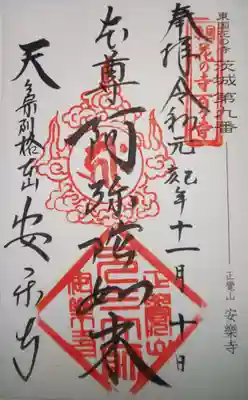 東国花の寺 茨城 第九番
奉拝 令和元己亥年十一月十日
本尊 阿弥陀如来
天台宗別格本山 安楽寺
正覺山 安樂寺
正覺山
安樂寺